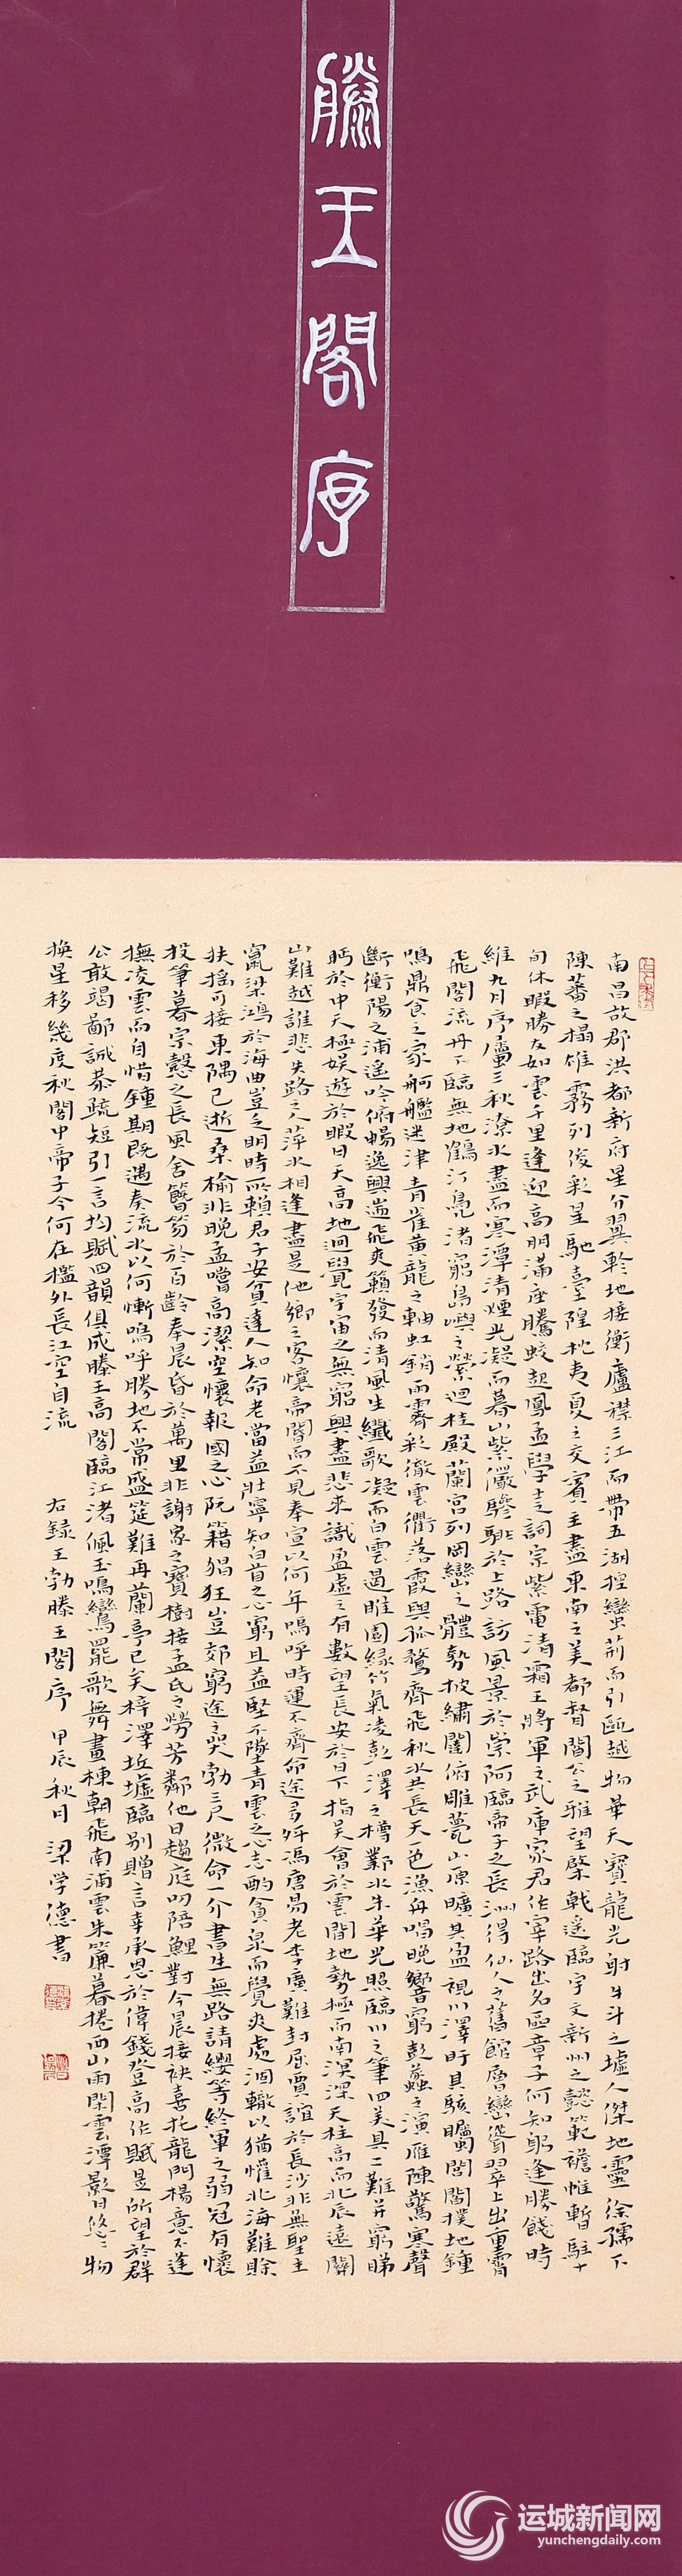 滕王閣序
南昌故郡洪都新府星分翼軫地接衡廬襟三江而帶五湖控蠻荊而引甌越物華天寶龍光射牛斗之墟人傑地靈徐孺下
陳蕃之榻雄霧列俊彩星馳臺隍枕夷夏之交賓主盡東南之美都督閻公之雅望棨戟遙臨宇文新州之懿範襜帷暫駐十
旬休暇勝友如雲千里逢迎高朋滿座騰蛟起鳳孟學士詞宗紫電清霜王將軍之武庫家君作宰路出名區童子何知躬逢勝餞時
維九月序屬三秋潦水盡而寒潭清煙光凝而暮山紫儼驂騑於上路訪風景於崇阿臨帝子之長洲得仙人之舊館層巒聳翠上出重霄
飛閣流丹下臨無地鶴汀鳧渚窮島嶼之縈迴桂殿蘭宮列岡巒之體勢披繡闥俯雕甍山原曠其盈視川澤盱其駭矚閭閻撲地鐘
鳴鼎食之家舸艦迷津青雀黃龍之軸虹銷雨霽彩徹雲衢落霞與孤鶩齊飛秋水共長天一色漁舟唱晚響窮彭蠡之濱雁陳驚寒聲
斷衡陽之浦遙吟俯暢逸興遄飛爽籟發而清風生纖歌凝而白雲遏睢園綠竹氣凌彭澤之樽鄴水朱華光照臨川之筆四美具二難并窮睇
眄於中天極娛遊於暇日天高地迥覺宇宙之無窮興盡悲來識盈虛之有數望長安於日下指吳會於雲間地勢極而南溟深天柱高而北辰遠關
山難越誰悲失路之人萍水相逢盡是他鄉之客懷帝閽而不見奉宣以何年嗚呼時運不齊命途多舛馮唐易老李廣難封屈賈誼於長沙非無聖主
竄梁鴻於海曲豈乏明時所賴君子安貧達人知命老當益壯寧知白首之心窮且益堅不墜青雲之志酌貪泉而覺爽處涸轍以猶懽北海難賒
扶搖可接東隅已逝桑榆非晚孟嘗高潔空懷報國之心阮籍猖狂豈效窮途之哭勃三尺微命一介書生無路請纓等終軍之弱冠有懷
投筆慕宗愨之長風舍簪笏於百齡奉晨昏於萬里非謝家之寶樹接孟氏之芳鄰他日趨庭叨陪鯉對今晨接袂喜托龍門楊意不逢
撫凌雲而自惜鍾期既遇奏流水以何慚嗚呼勝地不常盛筵難再蘭亭已矣梓澤坵墟臨別贈言幸承恩於偉餞登高作賦是所望於群
公敢竭鄙誠恭疏短引一言均賦四韻俱成滕王高閣臨江渚佩玉鳴鸞罷歌舞畫棟朝飛南浦雲朱簾暮捲西山雨閑雲潭影日悠悠物
換星移幾度秋閣中帝子今何在檻外長江空自流
右錄王勃滕王閣序 甲辰秋月 梁学德書
运城新闻网
yunchengdaily.com